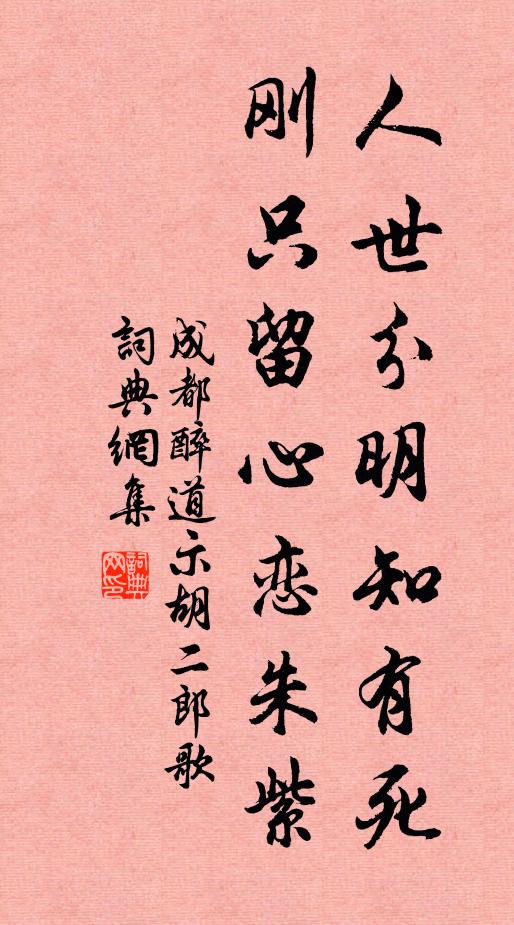 人世分明知有死
刚只留心恋朱紫
成都醉道示胡二郎歌
詞典網集
詞典網印